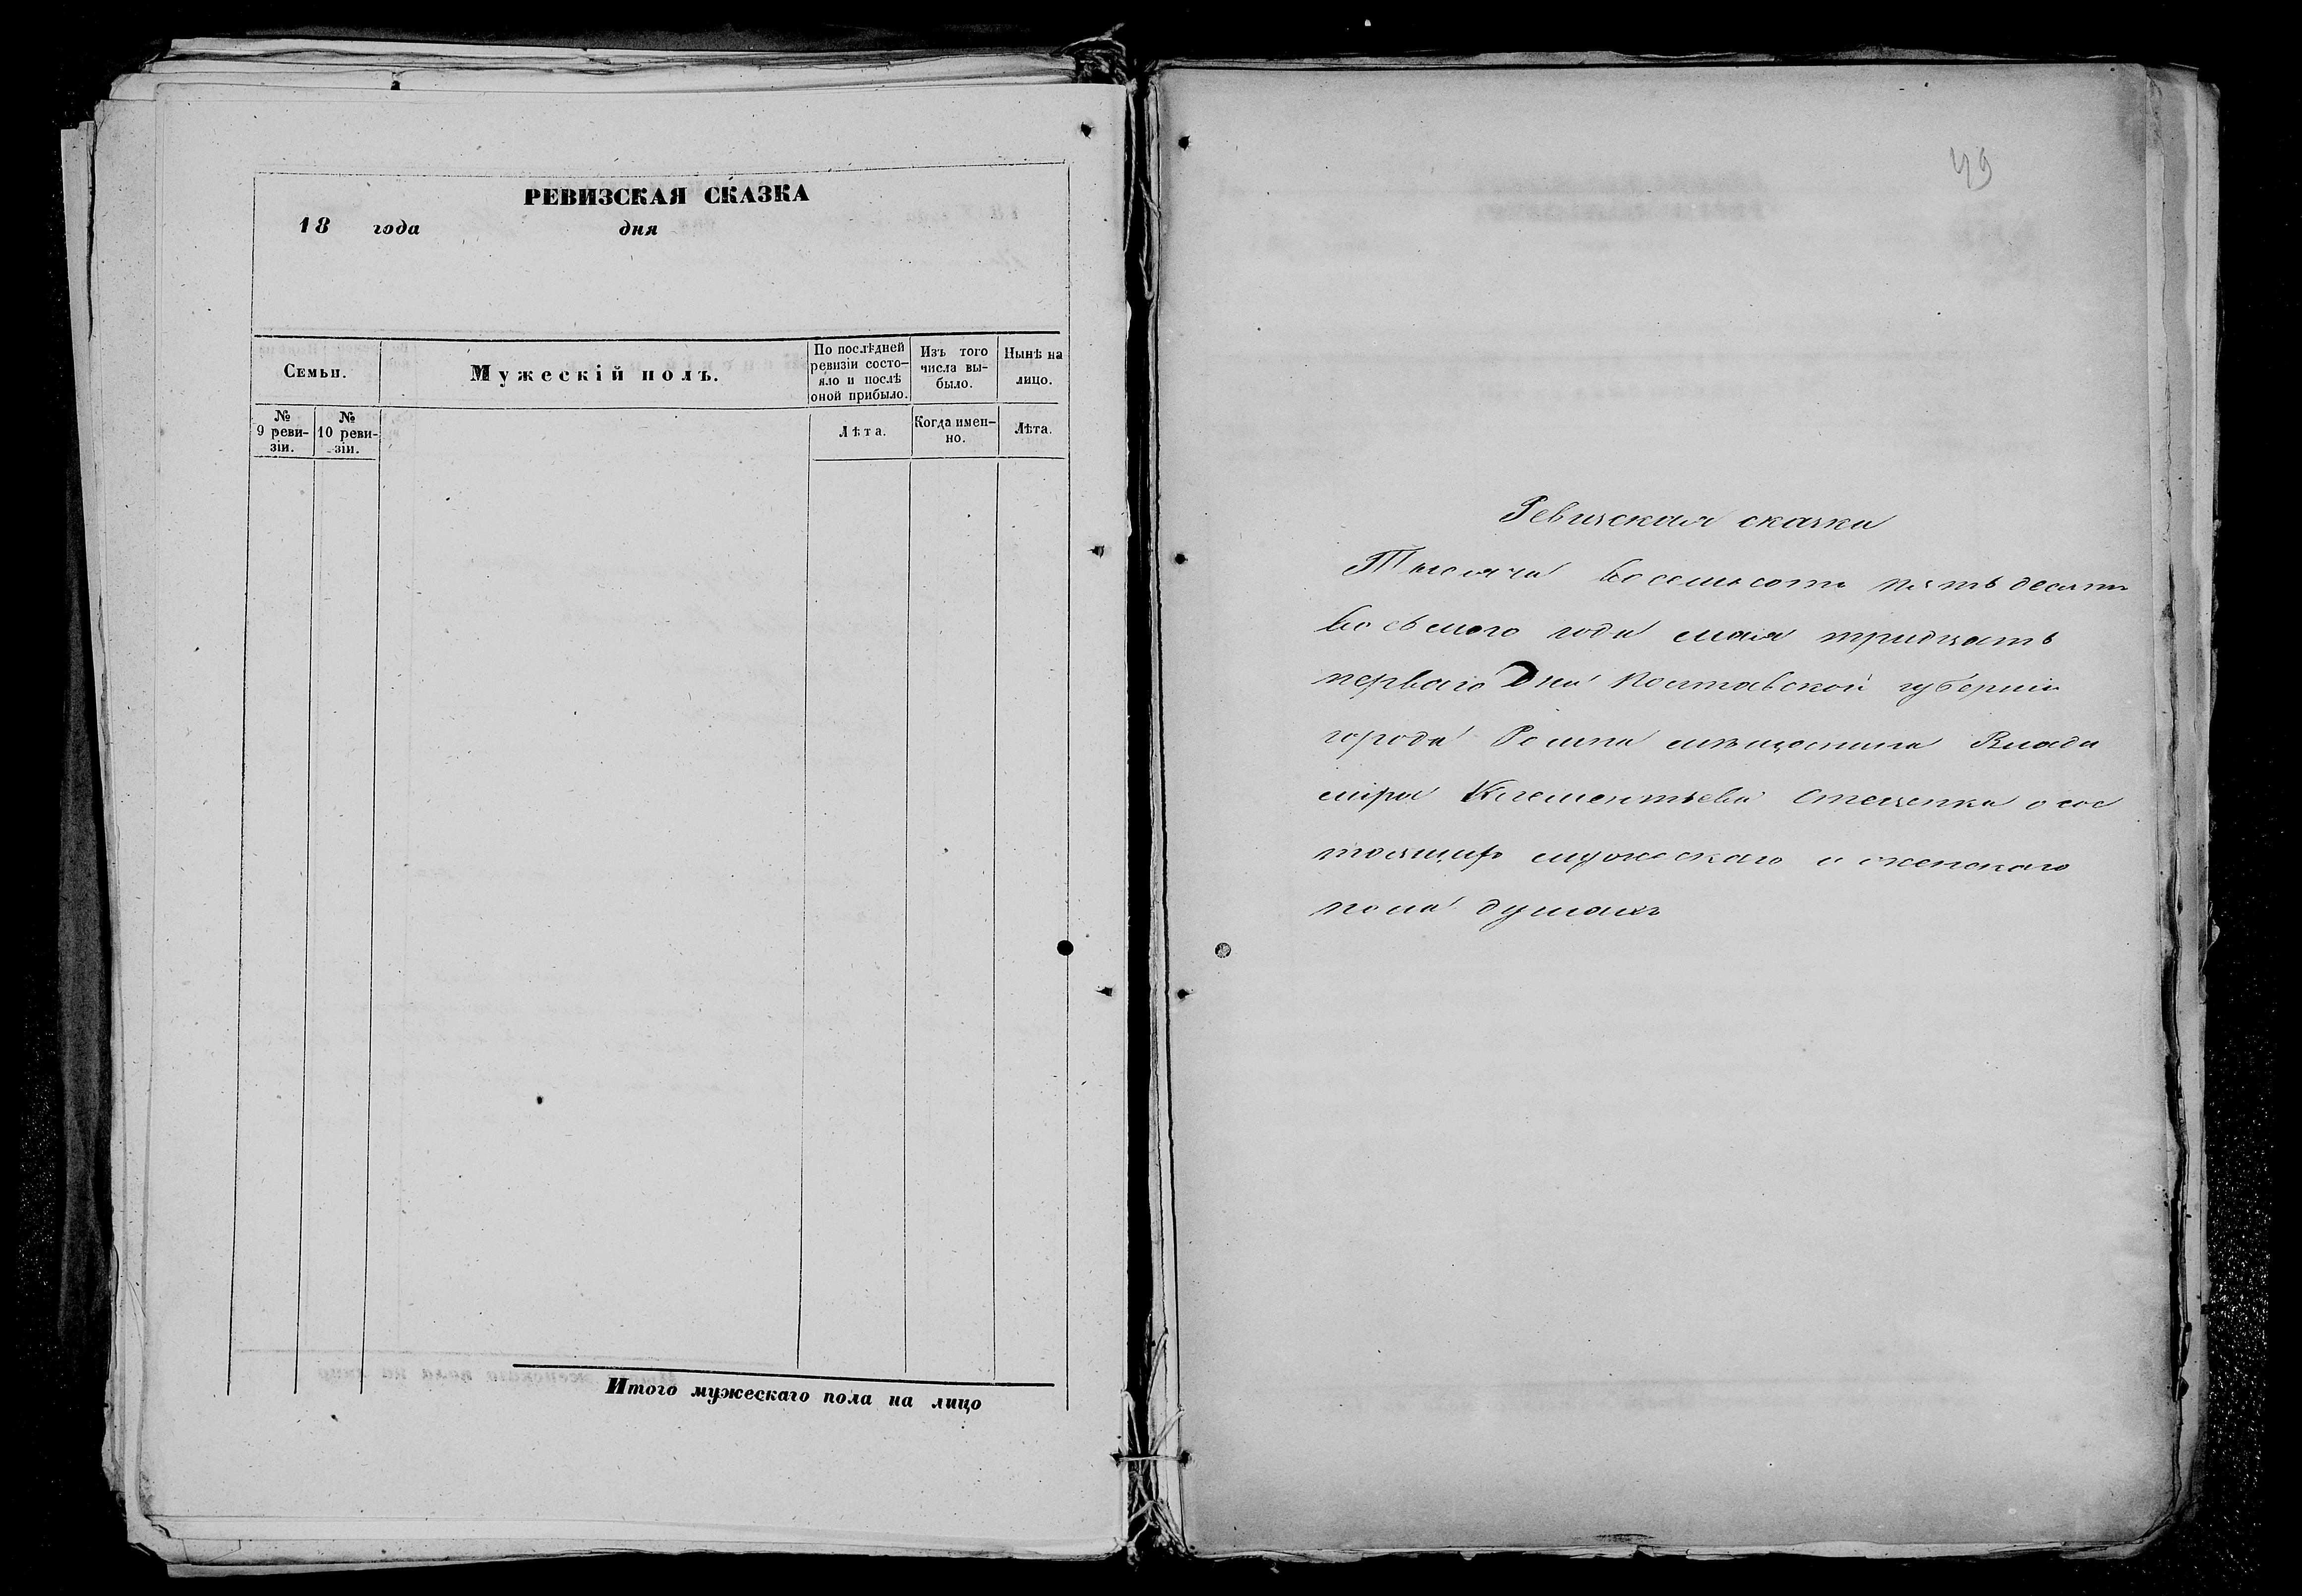 РЕВИЗСКАЯ СКАЗКА
18 года дня
Семьи.
Мужескій полъ.
По послѣдней ревизіи состояло и послѣ оной прибыло.
Изъ того числа выбыло.
Нынѣ на лицо.
№ 9 ревизіи.
№ 10 ревизіи.
Лѣта.
Когда именно.
Лѣта.
Итого мужескаго пола на лицо
49
Ревизская сказка
Тысяча восемьсотъ пятьдесятъ
восьмого года мая тридцать
перваго Дня Полтавской губерніи
города Ромна мѣщанина Влади
міра Клементьева Стеценка о сос
тоящихъ мужескаго и женскаго
пола душахъ